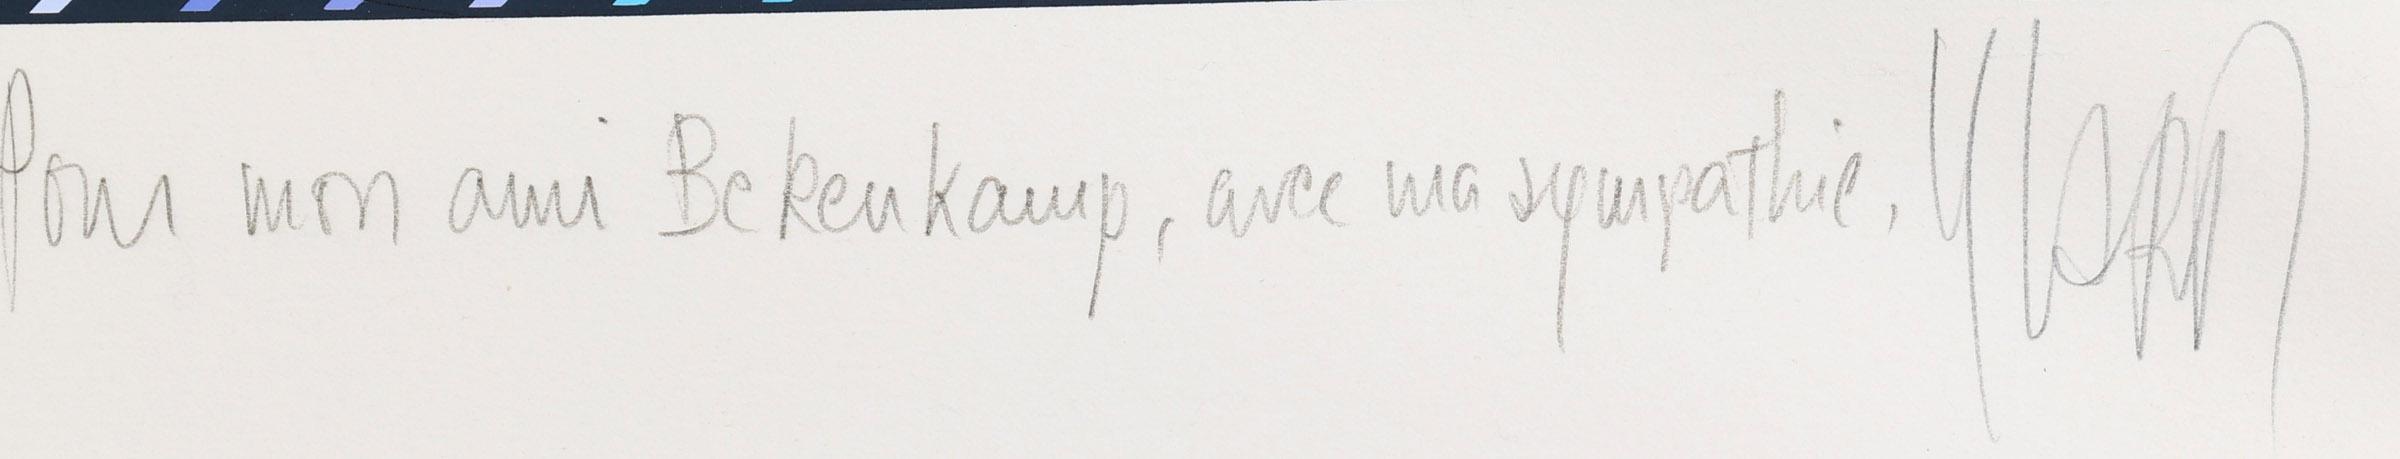 Pour mon ami Bekenkamp, avec ma sympathie,